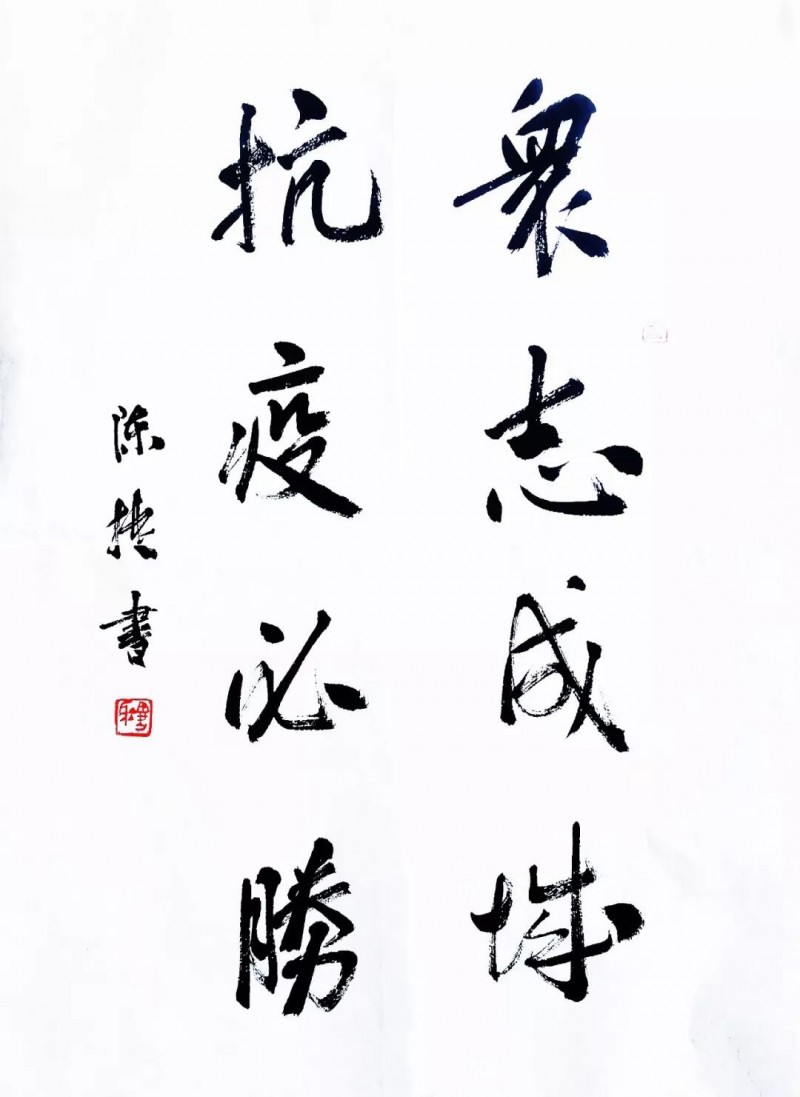 衆志成城
抗疫必勝
陈捷書